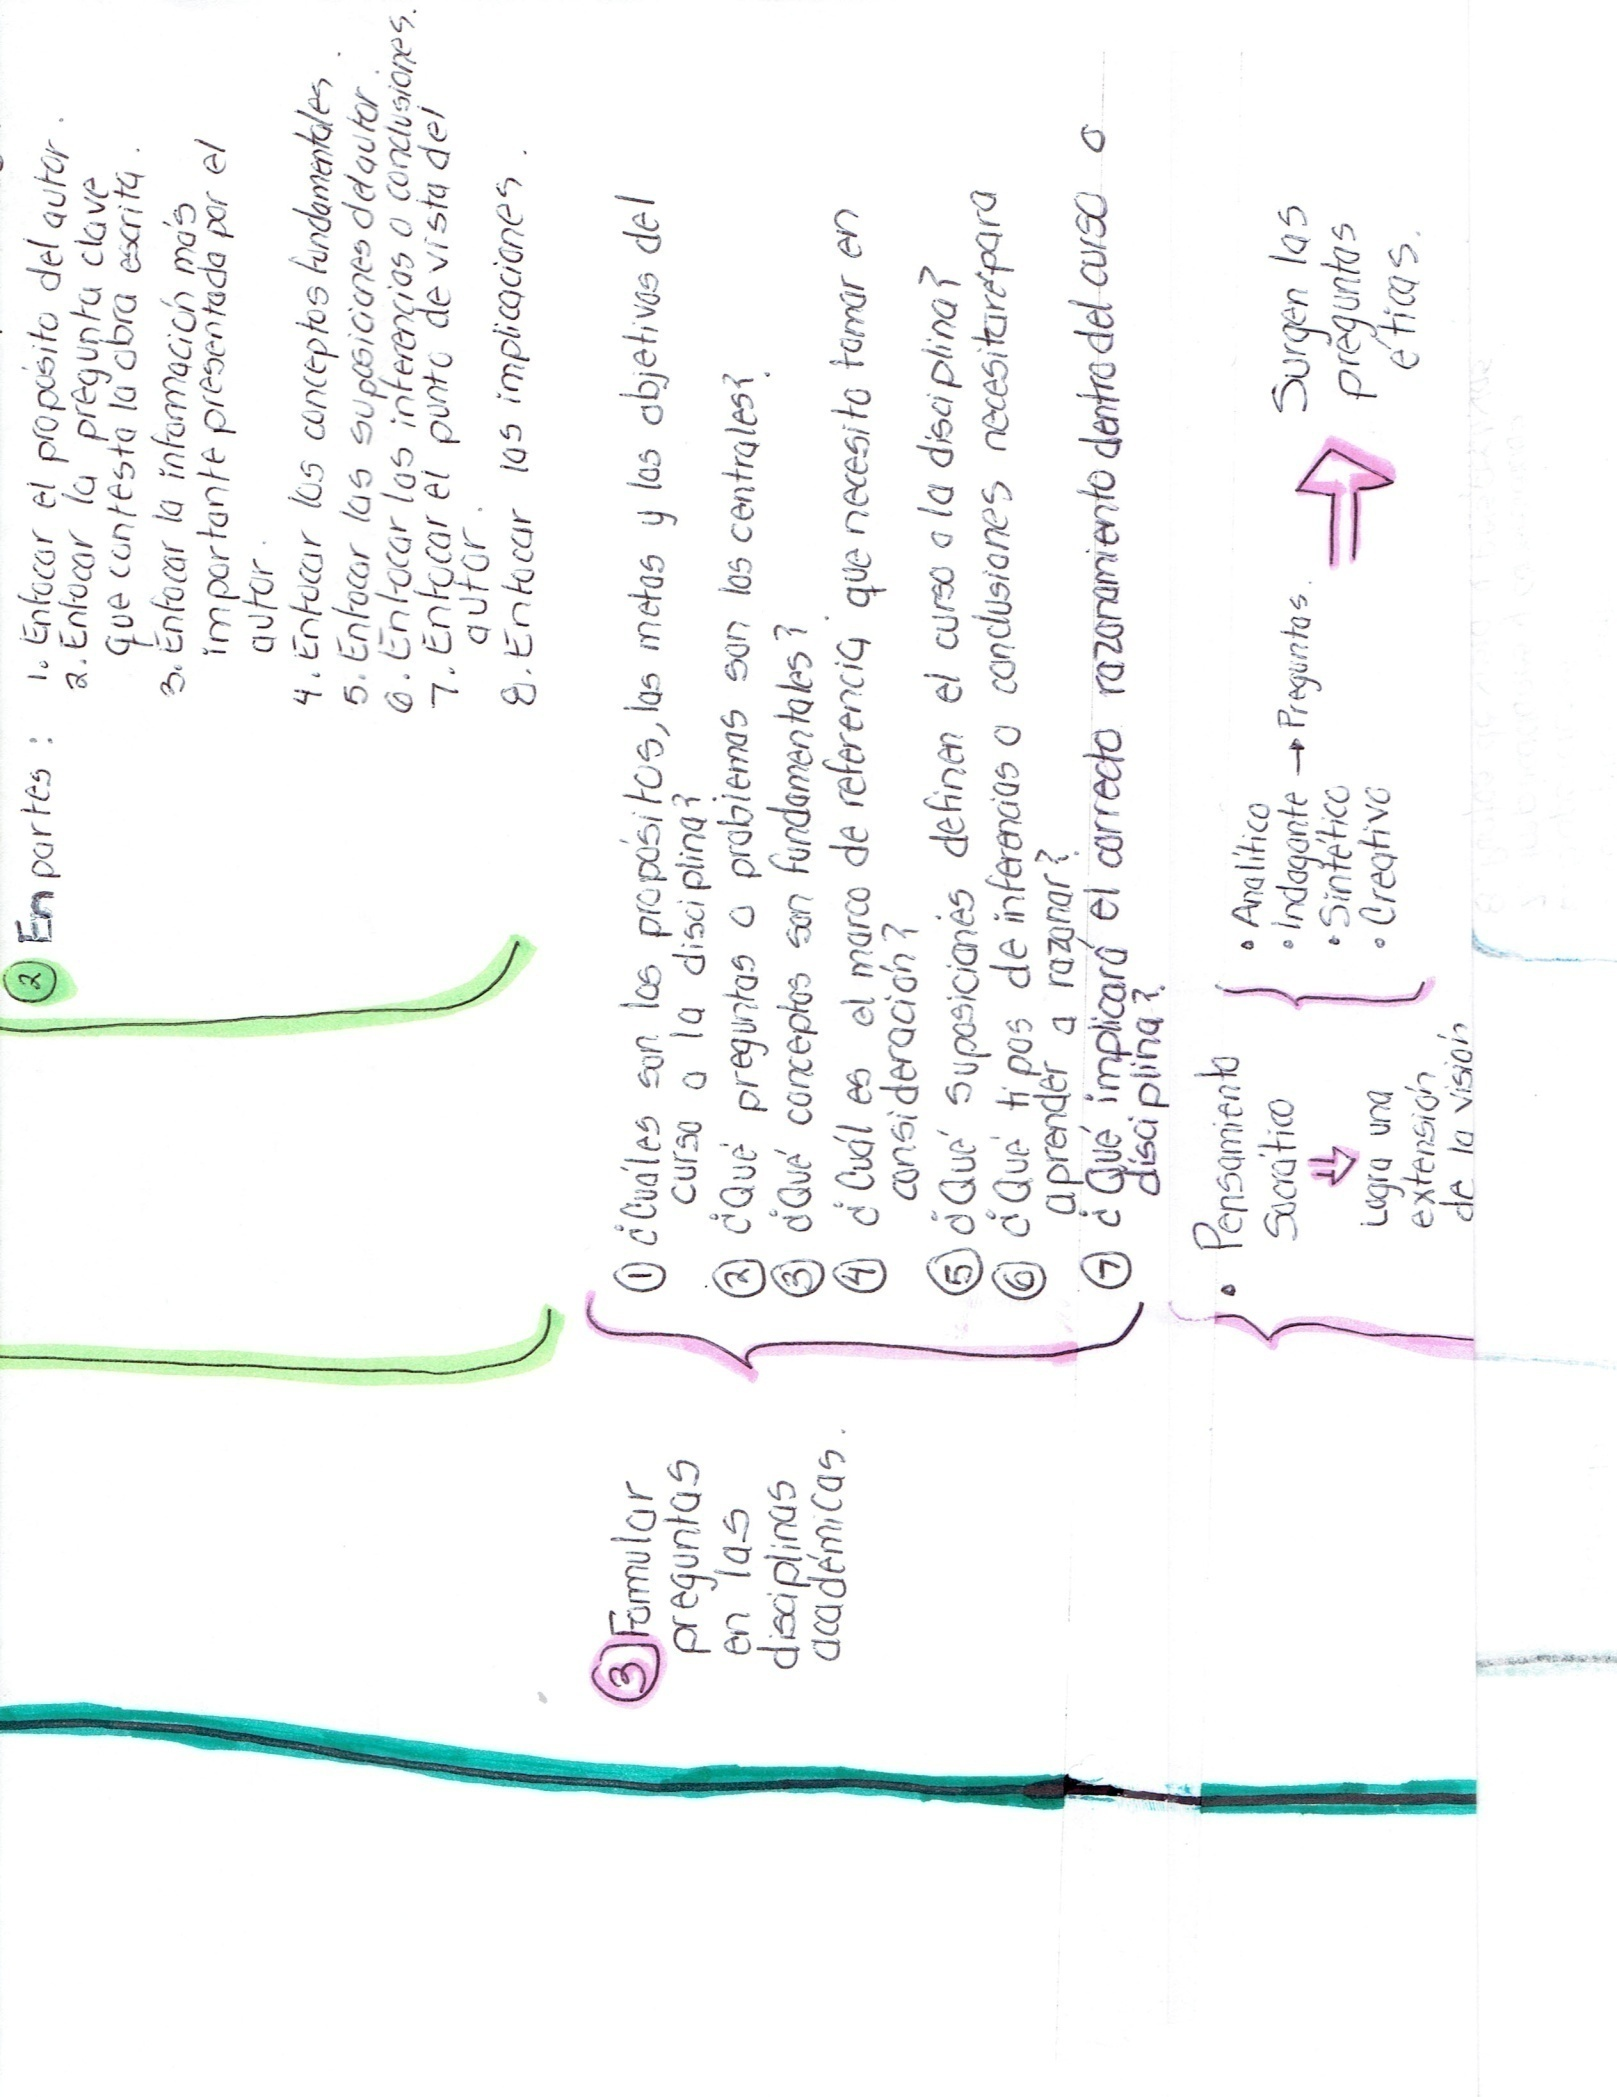 ② En partes :
1. Enfocar el propósito del autor.
2. Enfocar la pregunta clave
que contesta la obra escrita.
3. Enfocar la información más
importante presentada por el
autor.
4. Enfocar los conceptos fundamentales.
5. Enfocar las suposiciones del autor.
6. Enfocar las inferencias o conclusiones.
7. Enfocar el punto de vista del
autor.
8. Enfocar las implicaciones.
③ Formular
preguntas
en las
disciplinas
académicas.
① ¿Cuáles son los propósitos, las metas y los objetivos del
curso o la disciplina?
② ¿Qué preguntas o problemas son los centrales?
③ ¿Qué conceptos son fundamentales?
④ ¿Cuál es el marco de referencia que necesito tomar en
consideración?
⑤ ¿Qué suposiciones definen el curso o la disciplina?
⑥ ¿Qué tipos de inferencias o conclusiones necesitaré para
aprender a razonar?
⑦ ¿Qué implicará el correcto razonamiento dentro del curso o
disciplina?
• Pensamiento
Socrático
⇒
Logra una
extensión
de la visión
• Analítico
• Indagante → Preguntas.
• Sintético
• Creativo
⇒
Surgen las
preguntas
éticas.